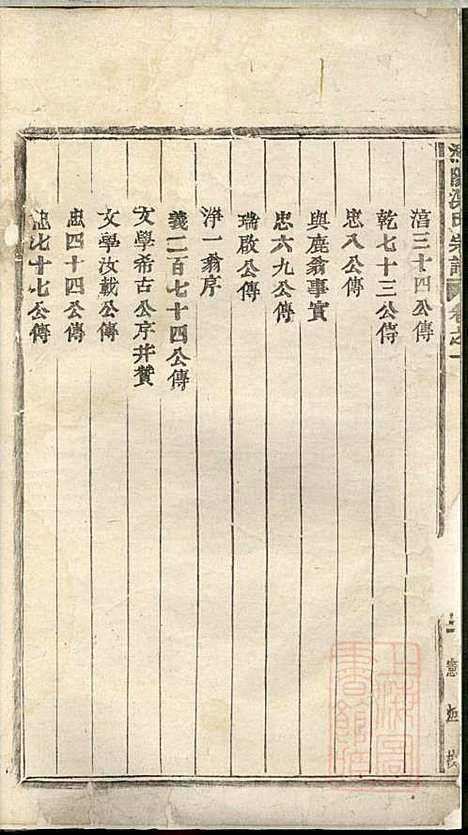 氏宗譜 卷之一
淯三十四公傳
乾七十三公傳
忠八公傳
與鹿翁事實
忠六九公傳
瑞啟公傳
淨一翁序
義二百七十四公傳
文學希古公序并贊
文學汝載公傳
忠四十四公傳
忠七十七公傳
上海圖書館藏